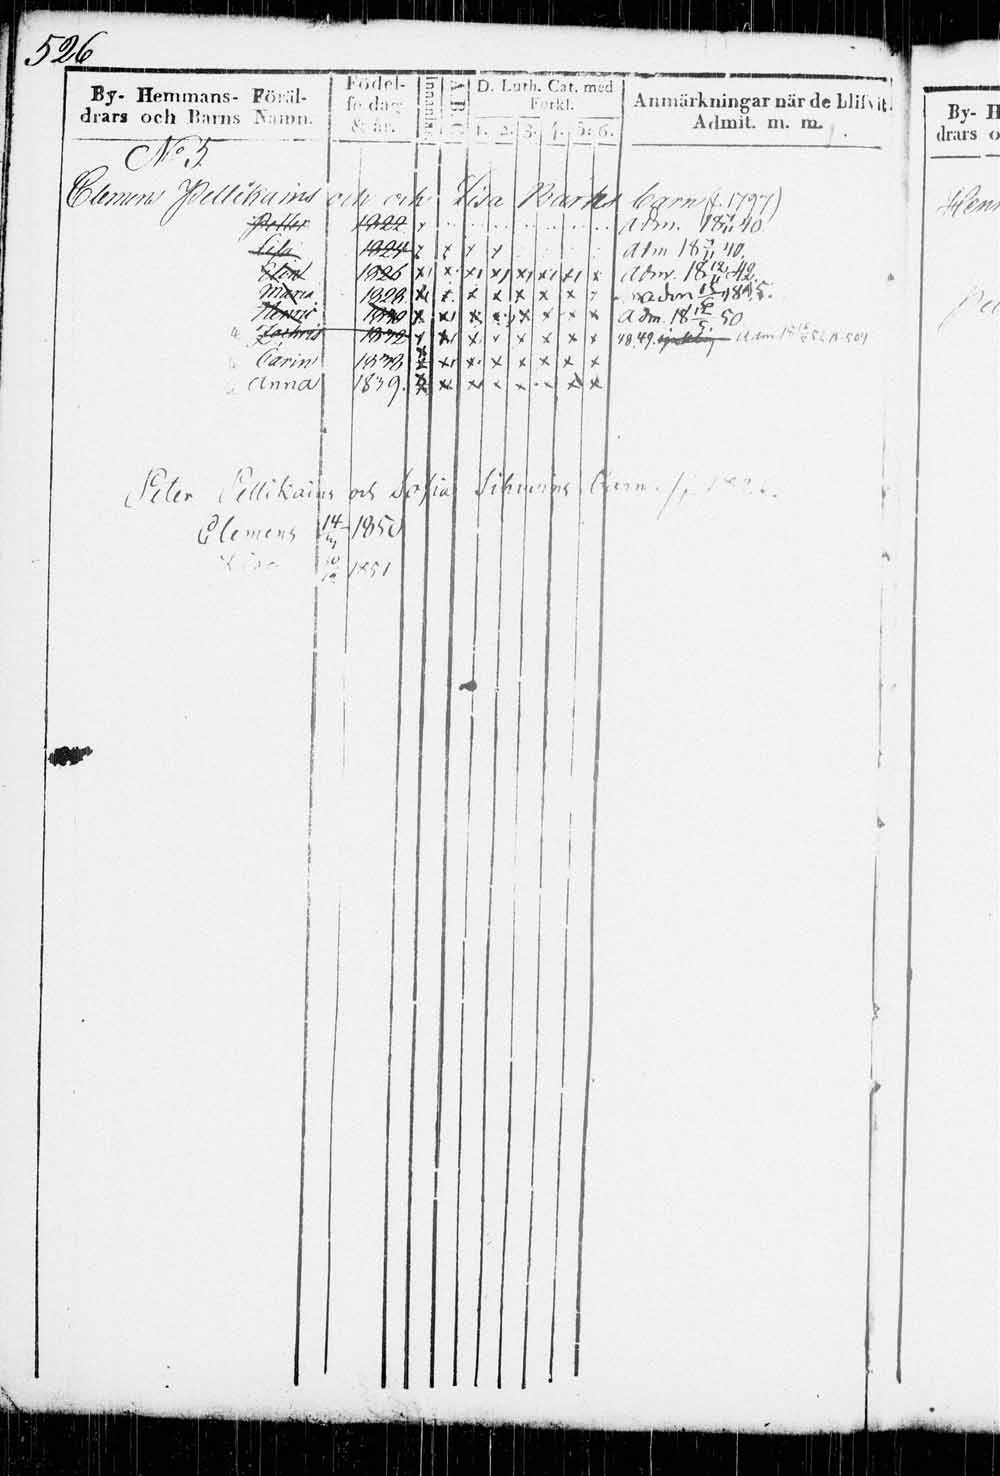 526
By- Hemmans- Föräl-
drars och Barns Namn.
Födel-
se dag
& år.
Innanläs.
A B C
D. Luth. Cat. med
Förkl.
1. 2. 3. 4. 5. 6.
Anmärkningar när de blifvit
Admit. m. m.
No 5
Clemens Pellikains och och Lisa Barks barn (f. 1797)
Petter 1822 Adm. 40
Lisa 1824 adm 18 40
1826 x x x x x x x x adm. 18 42
Maria 1828 x x x x x x adm 1845.
Henric 1830 x x x x x x adm. 18 50
Zachris 1832 x x x x 48.49. adm
Carin 1836 x x x x x x x x
Anna 1839. x x x x x x x
Peter Pellikains och Sofia Sihvoins barn
Clemens 14 1850
Lisa 10/12 1851
By- H
drars o